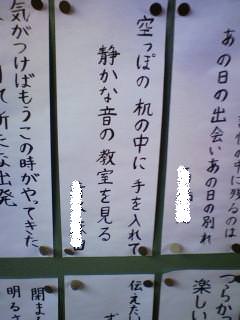 の中に残るのは
あの日の出会いあの日の別れ
空っぽの机の中に手を入れて
静かな音の教室を見る
気がつけばもうこの時がやってきた
な出発
つらかっ
楽しい
伝えたい
ず
開ま
明るさ